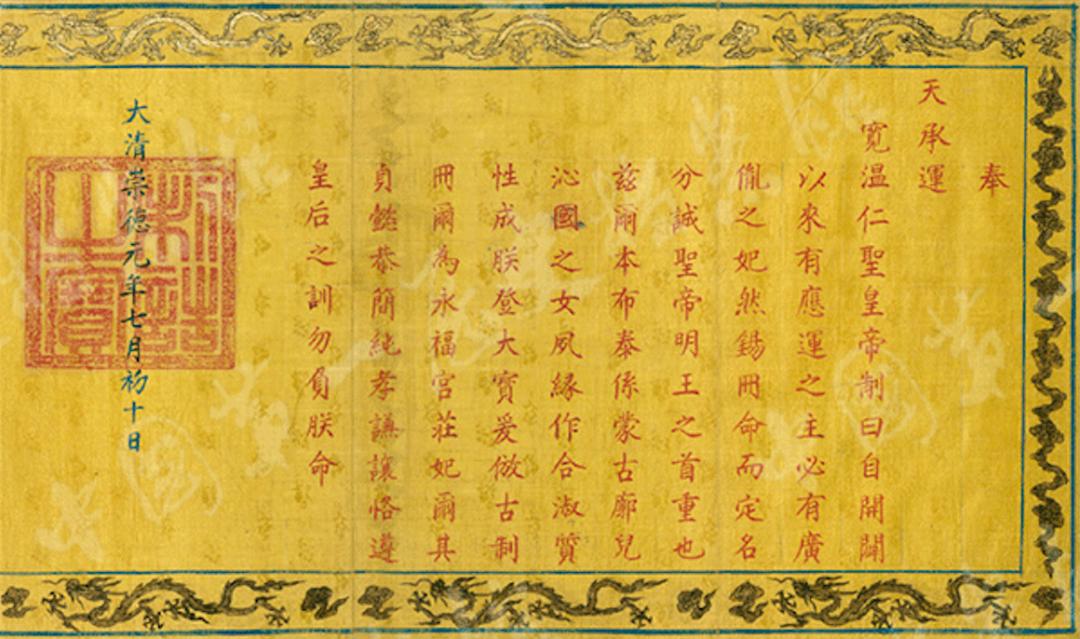 奉
天承運
寬温仁聖皇帝制曰自開闢
以來有應運之主必有廣
胤之妃然錫冊命而定名
分誠聖帝明王之首重也
茲爾本布泰係蒙古廓兒
沁國之女夙緣作合淑質
性成朕登大寶爰倣古制
冊爾為永福宮莊妃爾其
貞懿恭簡純孝謙讓恪遵
皇后之訓勿負朕命
大清崇德元年七月初十日
制誥之寶